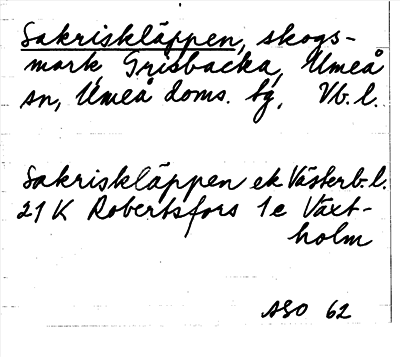 Sakriskläppen, skogs-
mark, Grisbacka, Umeå
sn, Umeå doms. tg, Vb. l.
Sakriskläppen ek Västerb. l.
21 K Robertsfors 1e Växt-
holm
ASO 62